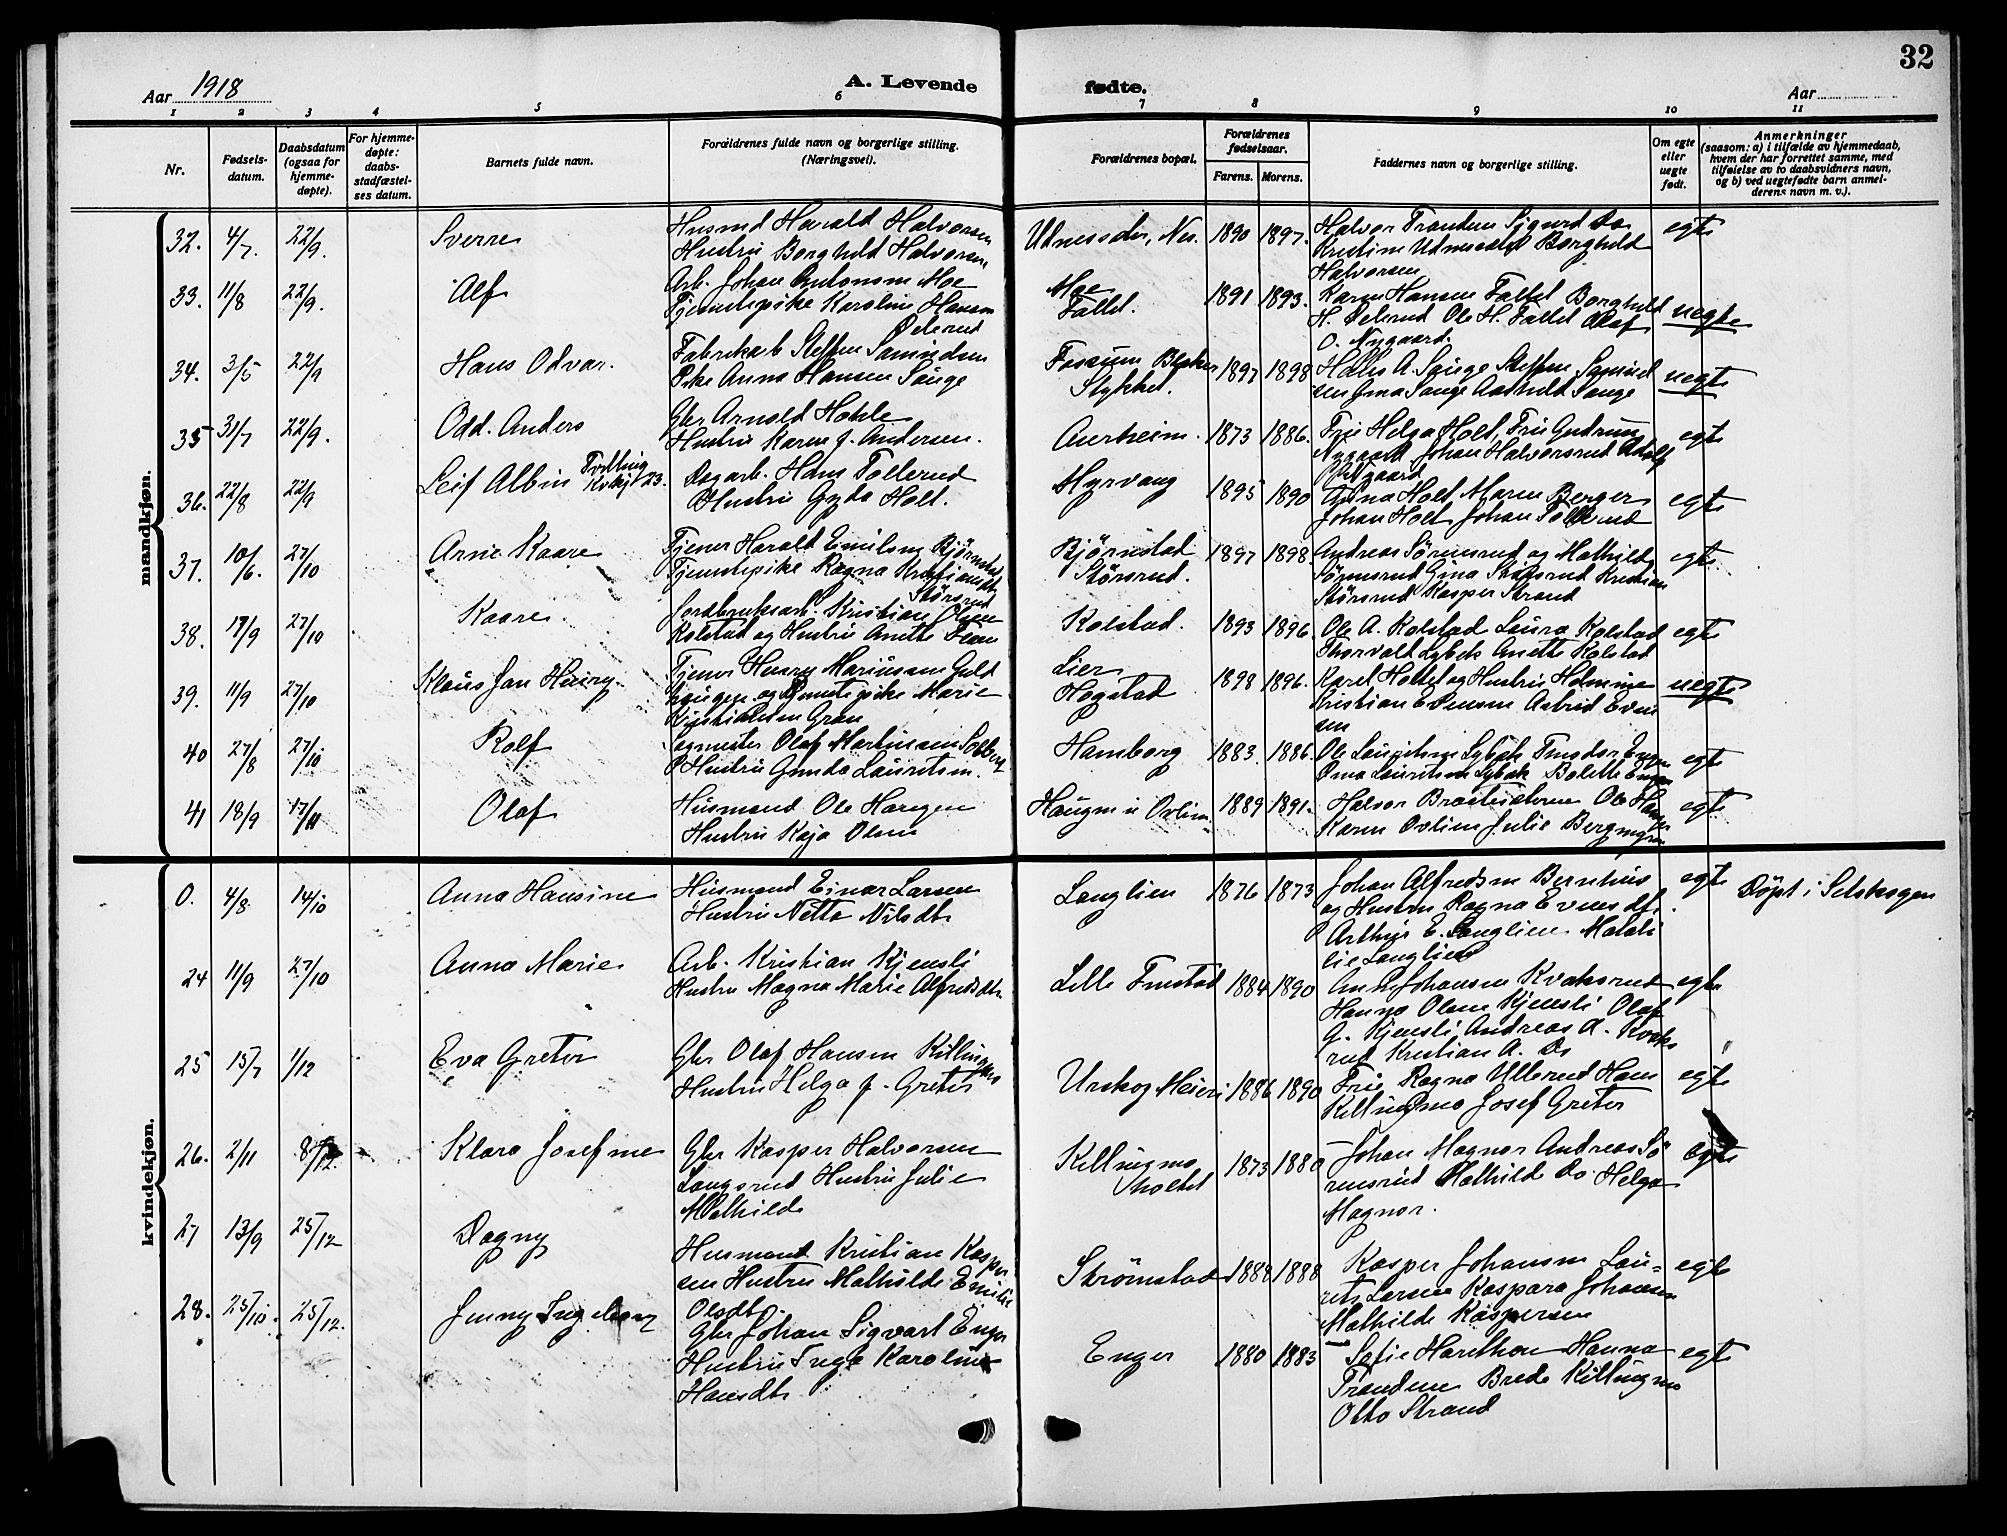 32
Aar 1918
A. Levende
fødte.
Aar
1 2 3 4 5 6 7 8 9 10 11
Nr.
Fødsels-
datum.
Daabsdatum
(ogsaa for
hjemme-
døpte).
For hjemme-
døpte:
daabs-
stadfæstel-
ses datum.
Barnets fulde navn.
Forældrenes fulde navn og borgerlige stilling.
(Næringsvei).
Forældrenes bopæl.
Forældrenes
fødselsaar.
Farens. Morens.
Faddernes navn og borgerlige stilling.
Om egte
eller
uegte
født.
Anmerkninger
(saasom: a) i tilfælde av hjemmedaab,
hvem der har forrettet samme, med
tilføielse av to daabsvidners navn,
og b) ved uegtefødte barn anmel-
derens navn m. v.).
mandkjøn.
32. 4/7. 22/9. Sverre
Husmd Harald Halvorsen
Hustru Borghild Halvorsen
1890 1897.
Halvor Tranden Sigurd Do
Kristine Borghild
Halvorsen
egte
33. 11/8 22/9. Alf
Arb. Johan Antonsen Moe
Tjenestepike Karoline Hansen
Ølerud
Moe
Fallet.
1891 1893.
Karen Hansen Fallet Borghild
H. Ølerud Ole H. Fallet Olaf
O. Nygaard.
uegte
34. 3/5 22/9 Hans Odvar.
Fabrikarb Steffen
Pike Anna Hansen Sauge
Fossum
Stykket.
1897 1898
Steffen
Sauge
uegte
35 31/7 22/9. Odd. Anders
Gbr Arnold Hohle
Hustru Karen f. Andersen.
Auerheim. 1873 1886.
Fru Helga Holt, Fru Gudrun
Nygaard Johan Halvorsrud
Nygaard
egte
36. 22/8 22/9 Leif Albin Tvilling
Kvkj 23.
Dagarb. Hans Tollerud
Hustru Gyda Holt.
Myrvang 1895 1890
Anna Holt Maren Berger
Johan Holt Johan Tollerud
egte
37. 10/6. 27/10 Arne Kaare
Tjener Harald Emilsen Bjørnstad
Tjenestepike Ragna Kristiansdtr
Størsrud
Bjørnstad
Størsrud.
1897 1898.
Andreas Sørensrud og Mathilde
Sørensrud Gina Størsrud Kristian
Størsrud Kasper Strand
egte
38. 17/9 27/10 Kaare
Jordbruksarb. Kristian Olsen
Kolstad og Hustru Anette
Kolstad. 1893 1896.
Ole A. Kolstad Laura Kolstad
Thorvald Lybek Anette Kolstad
egte
39. 11/9 27/10 Klaus Jan Henry
Tjener Henry Mariussen Guld
haugen og tjenestepike Marie
Kristiansen Gran
Lier
Hogstad
1898 1896.
Karl Holtet og Hustru
Kristian Evensen Astrid Even
sen
uegte
40 27/8 27/10 Rolf
Sagmester Olaf Martinsen Solberg
Hustru Gunda Lauritsen.
Hamborg 1883. 1886.
Ole Lauritsen Lybek Enger
Lauritsen Lybek Bolette Enger
egte
41 18/9 17/11 Olaf
Husmand Ole Haugen
Hustru Kaja Olsen
Haugen u Ovlien. 1889 1891.
Halvor Ole Haugen
Karen Ovlien Julie
egte
kvindekjøn.
0. 4/8 14/10 Anna Hansine
Husmand Einar Larsen
Hustru Netta Nilsdtr
Langlien 1876 1873
Johan Alfredsen
og Hustru Ragna Evensdtr.
Arthur E. Langlien Matali
lie Langlien
egte
Døpt i Setskogen
24 11/9 27/10 Anna Marie
Arb. Kristian Kjensli
Hustru Magna Marie Alfredsdtr.
Lille Finstad 1884 1890
Johansen Kvaksrud
Hanna Olsen Kjensli Olaf
G. Kjensli Andreas A. Kvaks
rud Kristian A. Do
egte
25 15/7 1/12 Eva Greter
Gbr Olaf Hansen Killingmo
Hustru Helga f. Greter
Urskog Meieri 1886 1890
Fru Ragna Ullerud Hans
Killingmo Josef Greter
egte
26. 2/11 8/12 Klara Josefine
Gbr Kasper Halvorsen
Langsrud Hustru Julie
Mathilde
Killingmo
holtet
1873 1880
Johan Magnor Andreas Sø
rensrud Mathilde Do Helga
Magnor.
egte
27 13/9 25/12 Dagny
Husmand Kristian Kasper
sen Hustru Mathilde Emilie
Olsdtr
Strømstad 1888 1888
Kasper Johansen Lau-
rits Larsen Kaspara Johansen
Mathilde Kaspersen
egte
28. 25/10. 25/12. Jenny Ingeborg
Gbr Johan Sigvart Enger
Hustru Inga Karoline
Hansdtr
Enger 1880 1883
Sofie Harethon Hanna
Tranden Brede Killingmo
Otto Strand
egte